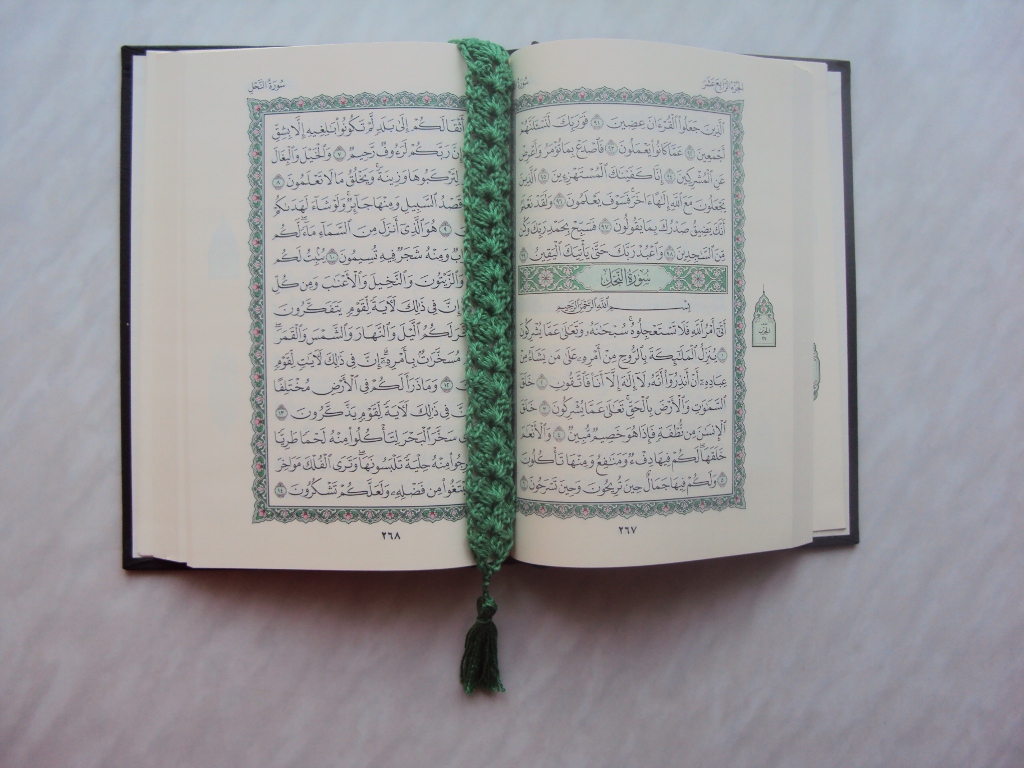 الجُزْءُ الرَّابِعَ عَشَرَ
ٱلَّذِينَ جَعَلُوا۟ ٱلْقُرْءَانَ عِضِينَ ٩١ فَوَرَبِّكَ لَنَسْـَٔلَنَّهُمْ
أَجْمَعِينَ ٩٢ عَمَّا كَانُوا۟ يَعْمَلُونَ ٩٣ فَٱصْدَعْ بِمَا تُؤْمَرُ وَأَعْرِضْ
عَنِ ٱلْمُشْرِكِينَ ٩٤ إِنَّا كَفَيْنَٰكَ ٱلْمُسْتَهْزِءِينَ ٩٥ ٱلَّذِينَ
يَجْعَلُونَ مَعَ ٱللَّهِ إِلَٰهًا ءَاخَرَ فَسَوْفَ يَعْلَمُونَ ٩٦ وَلَقَدْ نَعْلَمُ
أَنَّكَ يَضِيقُ صَدْرُكَ بِمَا يَقُولُونَ ٩٧ فَسَبِّحْ بِحَمْدِ رَبِّكَ وَكُن
مِّنَ ٱلسَّٰجِدِينَ ٩٨ وَٱعْبُدْ رَبَّكَ حَتَّىٰ يَأْتِيَكَ ٱلْيَقِينُ ٩٩
سُورَةُ النَّحْلِ
بِسْمِ ٱللَّهِ ٱلرَّحْمَٰنِ ٱلرَّحِيمِ
أَتَىٰٓ أَمْرُ ٱللَّهِ فَلَا تَسْتَعْجِلُوهُ سُبْحَٰنَهُۥ وَتَعَٰلَىٰ عَمَّا يُشْرِكُونَ
١ يُنَزِّلُ ٱلْمَلَٰٓئِكَةَ بِٱلرُّوحِ مِنْ أَمْرِهِۦ عَلَىٰ مَن يَشَآءُ مِنْ
عِبَادِهِۦٓ أَنْ أَنذِرُوٓا۟ أَنَّهُۥ لَآ إِلَٰهَ إِلَّآ أَنَا۠ فَٱتَّقُونِ ٢ خَلَقَ
ٱلسَّمَٰوَٰتِ وَٱلْأَرْضَ بِٱلْحَقِّ تَعَٰلَىٰ عَمَّا يُشْرِكُونَ ٣ خَلَقَ
ٱلْإِنسَٰنَ مِن نُّطْفَةٍ فَإِذَا هُوَ خَصِيمٌ مُّبِينٌ ٤ وَٱلْأَنْعَٰمَ
خَلَقَهَا لَكُمْ فِيهَا دِفْءٌ وَمَنَٰفِعُ وَمِنْهَا تَأْكُلُونَ
٥ وَلَكُمْ فِيهَا جَمَالٌ حِينَ تُرِيحُونَ وَحِينَ تَسْرَحُونَ ٦
٢٦٧
سُورَةُ النَّحْلِ
أَثْقَالَكُمْ إِلَىٰ بَلَدٍ لَّمْ تَكُونُوا۟ بَٰلِغِيهِ إِلَّا بِشِقِّ
إِنَّ رَبَّكُمْ لَرَءُوفٌ رَّحِيمٌ ٧ وَٱلْخَيْلَ وَٱلْبِغَالَ
لِتَرْكَبُوهَا وَزِينَةً وَيَخْلُقُ مَا لَا تَعْلَمُونَ ٨
قَصْدُ ٱلسَّبِيلِ وَمِنْهَا جَآئِرٌ وَلَوْ شَآءَ لَهَدَىٰكُمْ
٩ هُوَ ٱلَّذِىٓ أَنزَلَ مِنَ ٱلسَّمَآءِ مَآءً لَّكُم
وَمِنْهُ شَجَرٌ فِيهِ تُسِيمُونَ ١٠ يُنۢبِتُ لَكُم
وَٱلزَّيْتُونَ وَٱلنَّخِيلَ وَٱلْأَعْنَٰبَ وَمِن كُلِّ
إِنَّ فِى ذَٰلِكَ لَءَايَةً لِّقَوْمٍ يَتَفَكَّرُونَ
لَكُمُ ٱلَّيْلَ وَٱلنَّهَارَ وَٱلشَّمْسَ وَٱلْقَمَرَ
مُسَخَّرَٰتٌۢ بِأَمْرِهِۦٓ إِنَّ فِى ذَٰلِكَ لَءَايَٰتٍ لِّقَوْمٍ
١٢ وَمَا ذَرَأَ لَكُمْ فِى ٱلْأَرْضِ مُخْتَلِفًا
إِنَّ فِى ذَٰلِكَ لَءَايَةً لِّقَوْمٍ يَذَّكَّرُونَ ١٣
سَخَّرَ ٱلْبَحْرَ لِتَأْكُلُوا۟ مِنْهُ لَحْمًا طَرِيًّا
مِنْهُ حِلْيَةً تَلْبَسُونَهَا وَتَرَى ٱلْفُلْكَ مَوَاخِرَ
مِن فَضْلِهِۦ وَلَعَلَّكُمْ تَشْكُرُونَ ١٤
٢٦٨